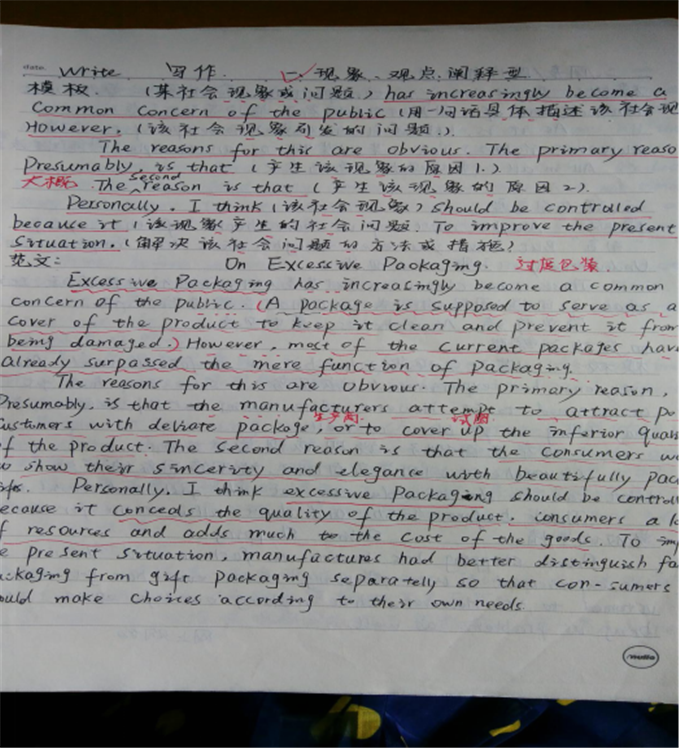 date. Write 写作. 一. 现象、观点阐释型
模板. (某社会现象或问题) has increasingly become a
Common concern of the public (用一句话具体描述该社会现
However, (该社会现象引发的问题.).
The reasons for this are obvious. The primary reaso
Presumably, is that (产生该现象的原因1.)
大概 The second reason is that (产生该现象的原因2).
Personally, I think (该社会现象) should be controlled
because it (该现象产生的社会问题. To improve the present
Situation, (解决该社会问题的方法或措施)
范文: On Excessive Packaging. 过度包装.
Excessive Packaging has increasingly become a common
concern of the public. (A package is supposed to serve as a
cover of the product to keep it clean and prevent it from
being damaged.) However, most of the current packages hav
already surpassed the mere function of packaging.
The reasons for this are obvious. The primary reason,
Presumably, is that the manufacturers attempt to attract po
生产商 试图
customers with deliate package, or to cover up the inferior qua
f the product. The second reason is that the consumers w
o show their sincerity and elegance with beautifully pac
ifts. Personally, I think excessive Packaging should be control
ecause it conceals the quality of the product, consumers a lo
f resources and adds much to the cost of the goods. To imp
e present situation, manufactures had better distinguish fa
ckaging from gift packaging separately so that con-sumers
ould make choices according to their own needs.